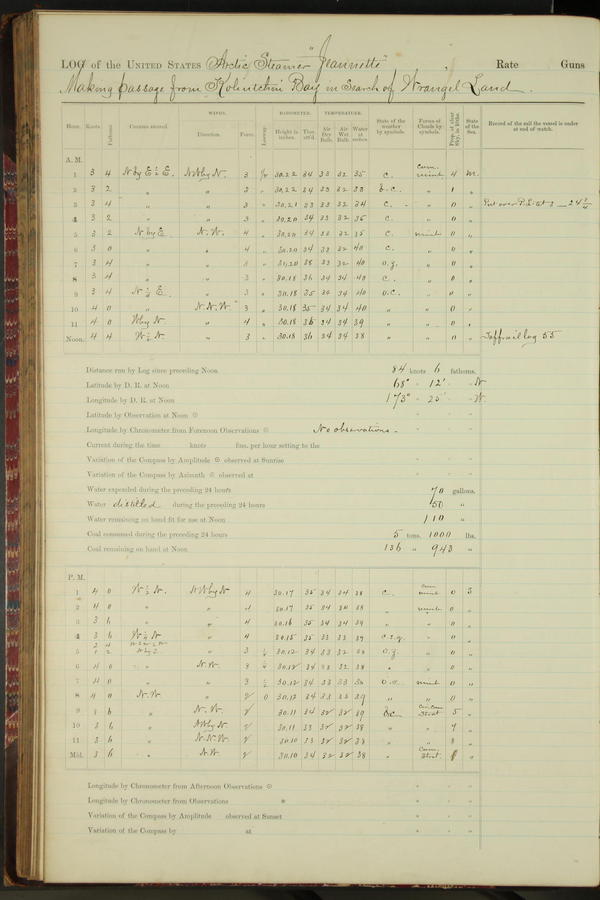 LOG of the UNITED STATES Arctic Steamer "Jeannette" Rate Guns
Making passage from Koliutchin Bay in Search of Wrangel Land.
WINDS. BAROMETER. TEMPERATURE.
Hour. Knots. Fathoms. Courses steered. Direction. Force. Leeway. Height in inches. Ther. att'd. Air Dry Bulb. Air Wet Bulb. Water at surface. State of the weather by symbols. Forms of Clouds by symbols. Prop. of clear Sky, in 10ths. State of the Sea. Record of the sail the vessel is under at end of watch.
A. M.
1 3 4 N by E ½ E. NW by N. 3 30.22 34 33 32 35 c. 4 m.
2 3 2 " " 3 " 30.22 34 33 32 33 b.c. " 1 "
3 3 4 " " 3 " 30.21 33 33 32 34 c. " 0 "
4 3 2 " " 3 " 30.20 34 33 32 35 c. " 0 "
5 3 2 N by E N. W. 4 " 30.20 34 33 32 35 c. 0 "
6 3 0 " " 4 " 30.20 34 33 32 40 c. " 0 "
7 3 4 " " 3 " 30.20 38 33 32 40 o.g. " 0 "
8 3 4 " " 3 " 30.18 36 34 34 40 c. " 0 "
9 3 4 N ¼ E " 3 " 30.18 35 34 34 40 o.c. " 0 "
10 4 0 " N.N.W. 3 " 30.18 35 34 34 40 " " 0 "
11 4 0 N by W " 4 " 30.18 36 34 34 39 " " 0 "
Noon. 4 4 " 3 " 30.18 36 34 34 38 " " 0 " Taffrail log 55
Distance run by Log since preceding Noon 84 knots 6 fathoms.
Latitude by D. R. at Noon 68° 12' N
Longitude by D. R. at Noon 173° 25' W.
Latitude by Observation at Noon
Longitude by Chronometer from Forenoon Observations No observations.
Current during the time knots fms. per hour setting to the
Variation of the Compass by Amplitude observed at Sunrise
Variation of the Compass by Azimuth observed at
Water expended during the preceding 24 hours 70 gallons.
Water distilled during the preceding 24 hours 150 "
Water remaining on hand fit for use at Noon 110 "
Coal consumed during the preceding 24 hours 5 tons, 1000 lbs.
Coal remaining on hand at Noon 136 " 943 "
P. M.
1 4 0 NW by N 4 30.17 35 34 34 38 c. 0 S
2 4 0 " " 4 30.17 35 34 34 38 " 0 "
3 3 6 " " 4 30.16 35 34 34 39 " " 0 "
4 3 6 " 4 30.15 35 33 33 39 " 0 "
5 3 30.12 34 33 32 38 o.g. " 0 "
6 4 0 " N.W. 3 30.12 34 33 32 38 " " 0 "
7 4 0 " " 3 30.12 34 33 33 0 "
8 4 0 N.W. " 2 0 30.12 34 33 33 39 " " 0 "
9 3 6 " N. W. 2 30.11 34 32 32 39 b.c. 5 "
10 3 6 " NW by N. 2 30.11 33 32 32 38 " " 7 "
11 3 6 " N.N.W. 2 30.10 33 32 32 38 " " 8 "
Mid. 3 6 " N.W. 2 30.10 34 32 32 38 " "
Longitude by Chronometer from Afternoon Observations
Longitude by Chronometer from Observations
Variation of the Compass by Amplitude observed at Sunset
Variation of the Compass by at